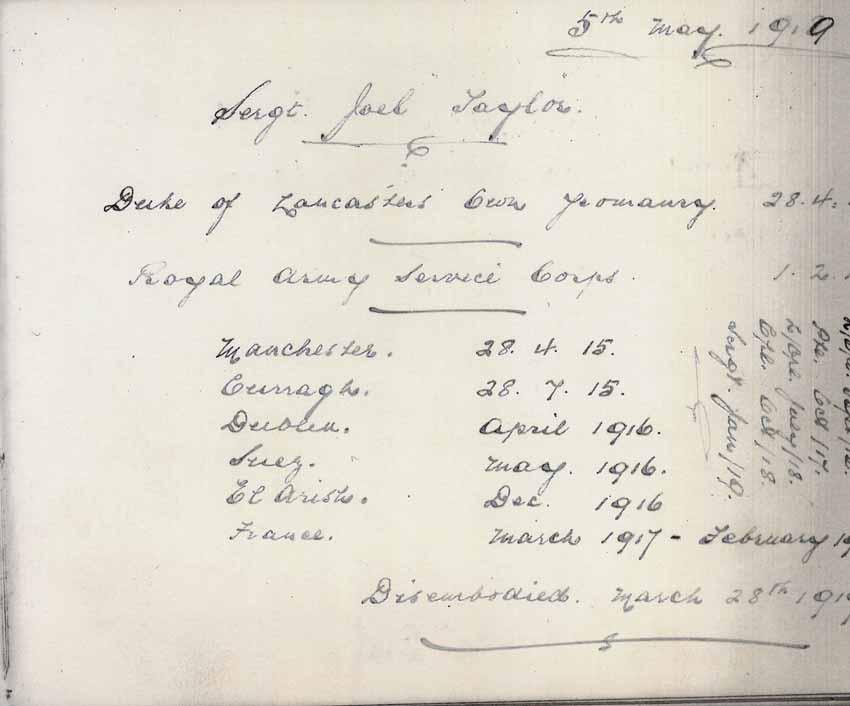 5th May. 1919
Sergt. Joel Taylor.
Duke of Lancaster's Own Yeomanry. 28.4.
Royal Army Service Corps. 1.2.1
Manchester. 28. 4. 15.
Curragh. 28. 7. 15.
Dublin. April 1916.
Suez. May. 1916.
El Arish. Dec. 1916
France. March 1917 - February 19
Disembodied. March 28th 191
Pte. Oct/17.
L/Cpl. July/18.
Cpl. Oct/18.
Sergt. Jan/19.